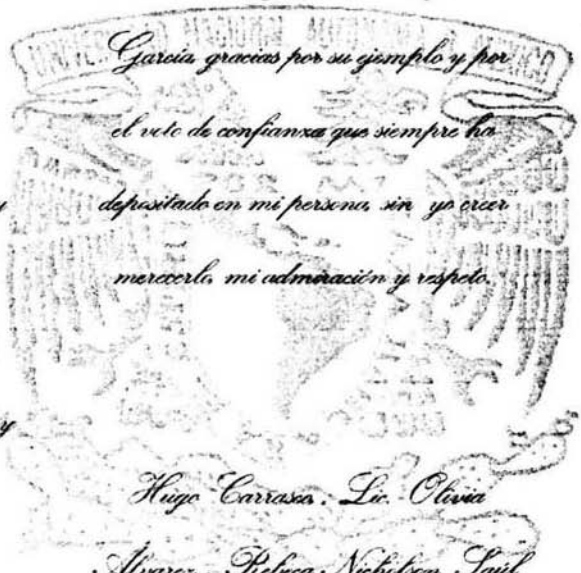 García, gracias por su ejemplo y por
el voto de confianza que siempre ha
y
depositado en mi persona, sin yo creer
merecerlo, mi admiración y respeto.
y
Hugo Carrasco, Lic. Olivia
Alvarez, Rebeca Nicholson, Saúl